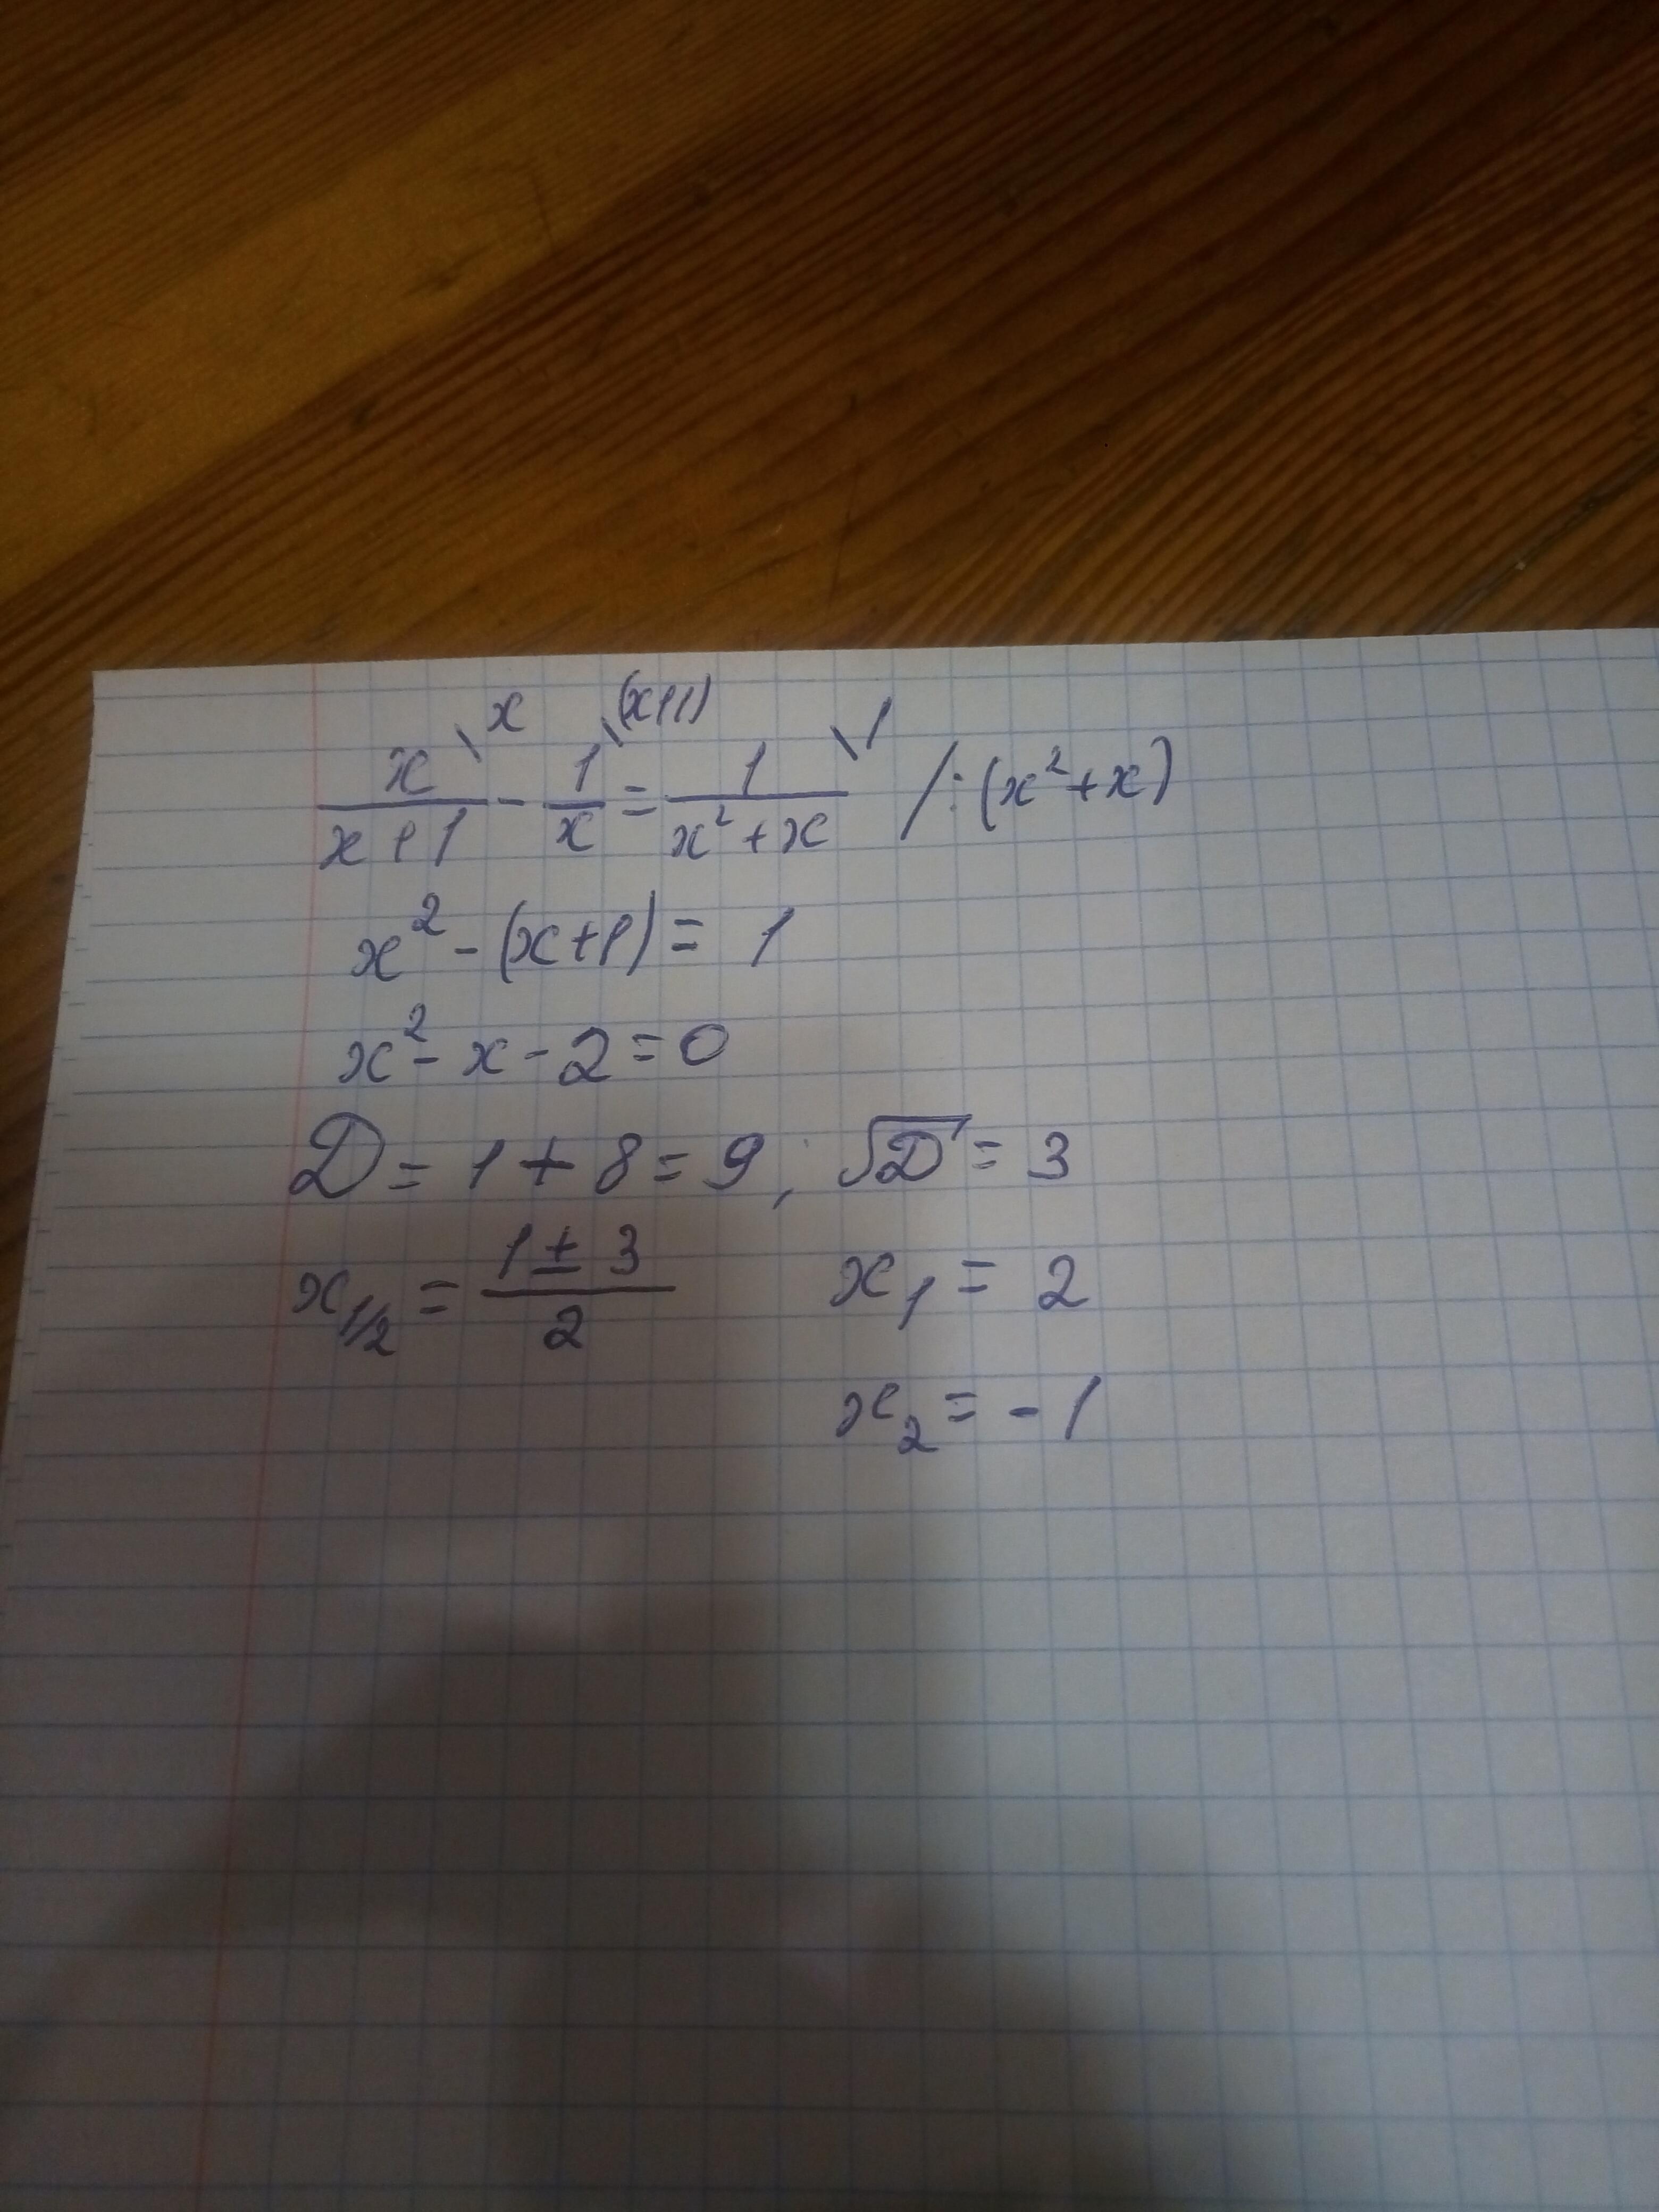 x/(x+1) \x - 1/x \(x+1) = 1/(x²+x) \1 /:(x²+x)
x² - (x+1) = 1
x² - x - 2 = 0
D = 1 + 8 = 9; √D = 3
x₁/₂ = (1 ± 3)/2 x₁ = 2
x₂ = -1